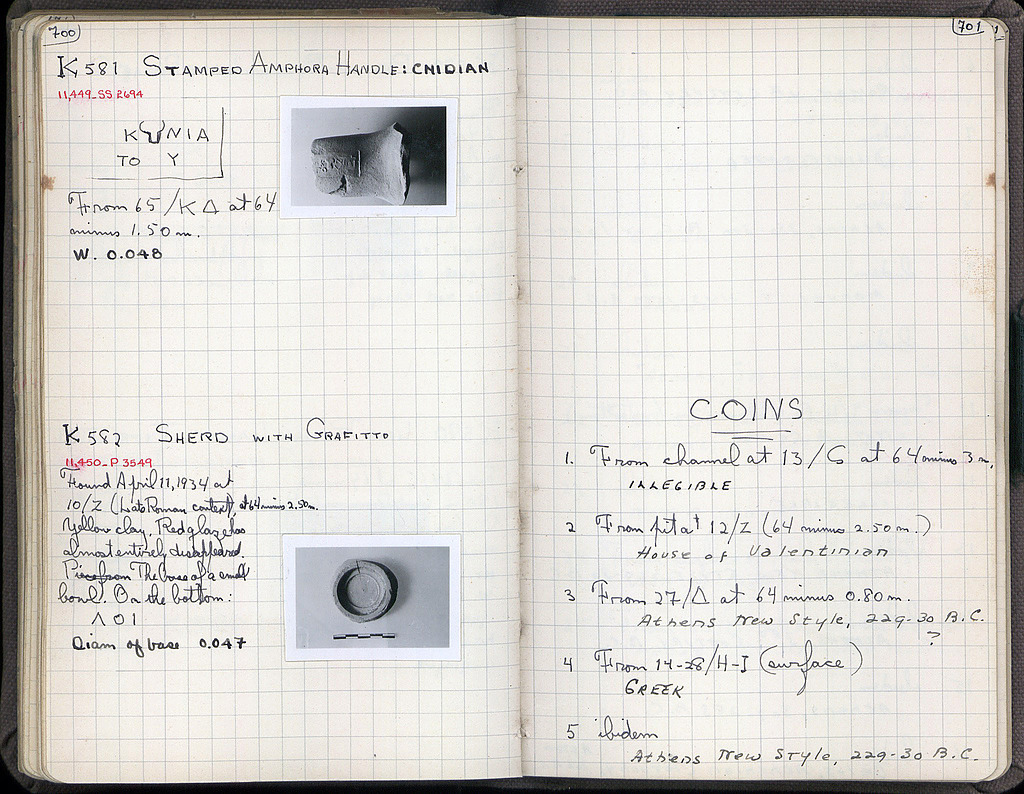 700
K 581 STAMPED AMPHORA HANDLE: CNIDIAN
11,449-SS 2694
K NIA
TO Y
From 65/ΚΔ at 64
minus 1.50 m.
W. 0.048
K 582 SHERD WITH GRAFITTO
11,450-P 3549
Found April 11, 1934 at
10/Z (Late Roman context), at 64 minus 2.50m.
Yellow clay. Red glaze has
almost entirely disappeared.
Piece from The base of a small
bowl. On the bottom:
Λ Ο Ι
Diam of base 0.047
701
COINS
1. From channel at 13/S at 64 minus 3 m.
ILLEGIBLE
2 From pit at 12/Z (64 minus 2.50 m.)
House of Valentinian
3 From 27/Δ at 64 minus 0.80 m.
Athens New Style, 229-30 B.C.
?
4 From 14-28/H-I (surface)
GREEK
5 ibidem
Athens New Style, 229-30 B.C.